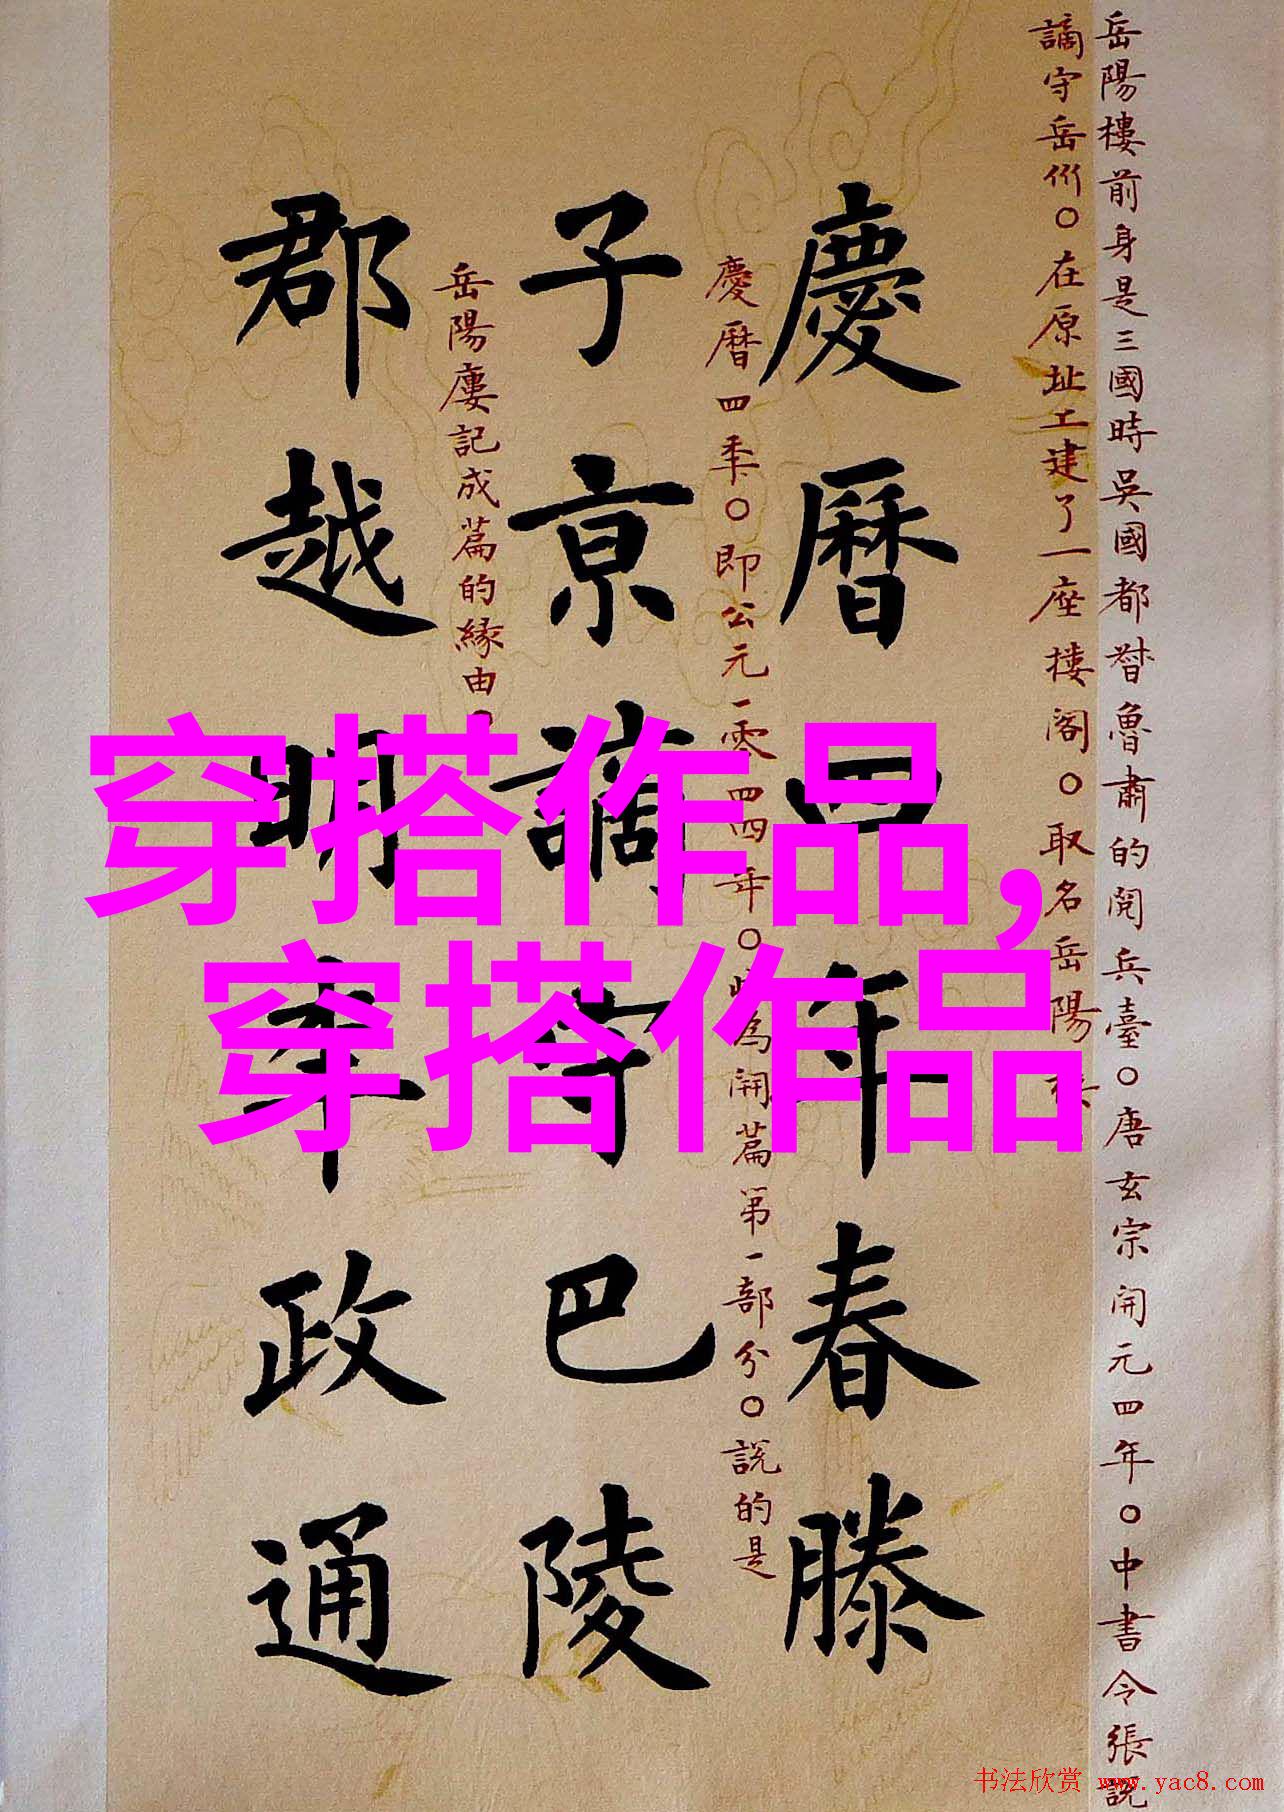 岳陽樓前身是三國時吳國都督魯肅的閱兵臺○唐玄宗開元四年○中書令張說
謫守岳州○在原址上建了一座樓閣○取名岳陽樓
慶曆四年春滕
慶曆四年○即公元一零四四年○此為開篇第一部分○說的是
子京謫守巴陵
岳陽廔記成篇的緣由○
郡越明年政通
穿搭作品,
穿搭作品
书法欣赏 www.yac8.com